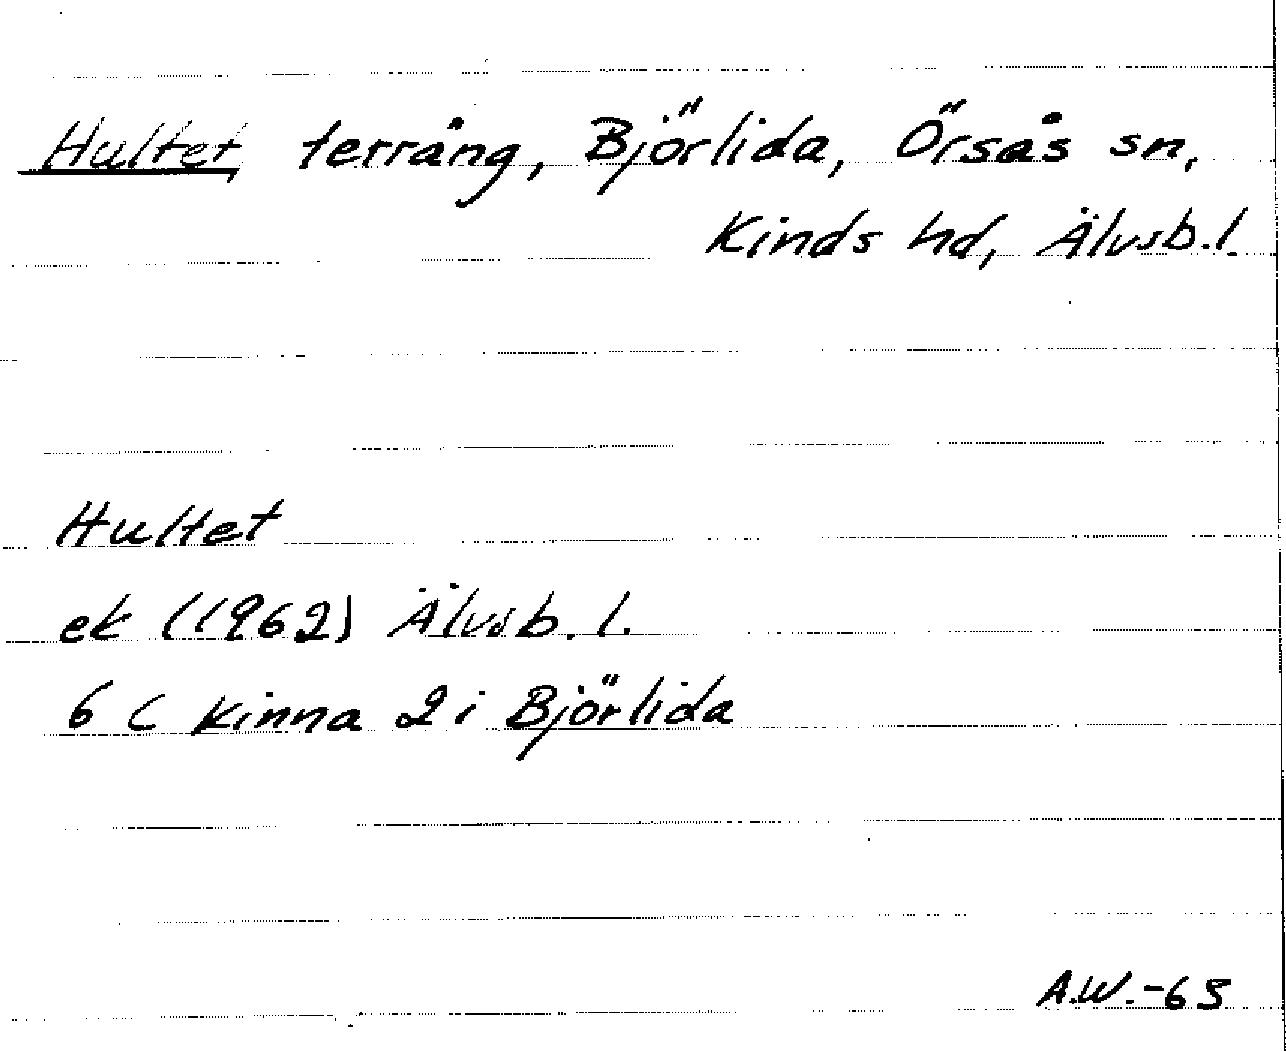 Hultet, terräng, Björlida, Örsås sn,
Kinds hd, Älvsb.l.
Hultet
ek (1962) Älvsb.l.
6 C Kinna 2 i Björlida
A.W.-65